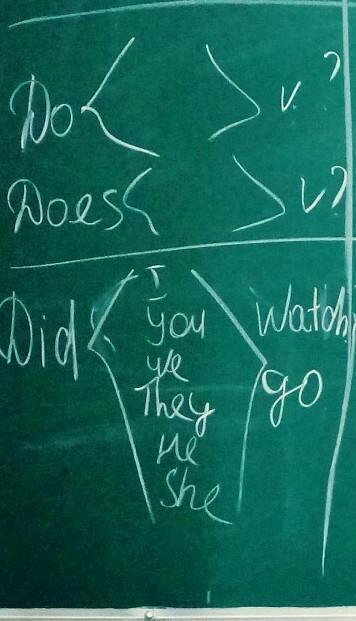 Do v ?
Does v ?
I
Did you watch
we go
They
He
She